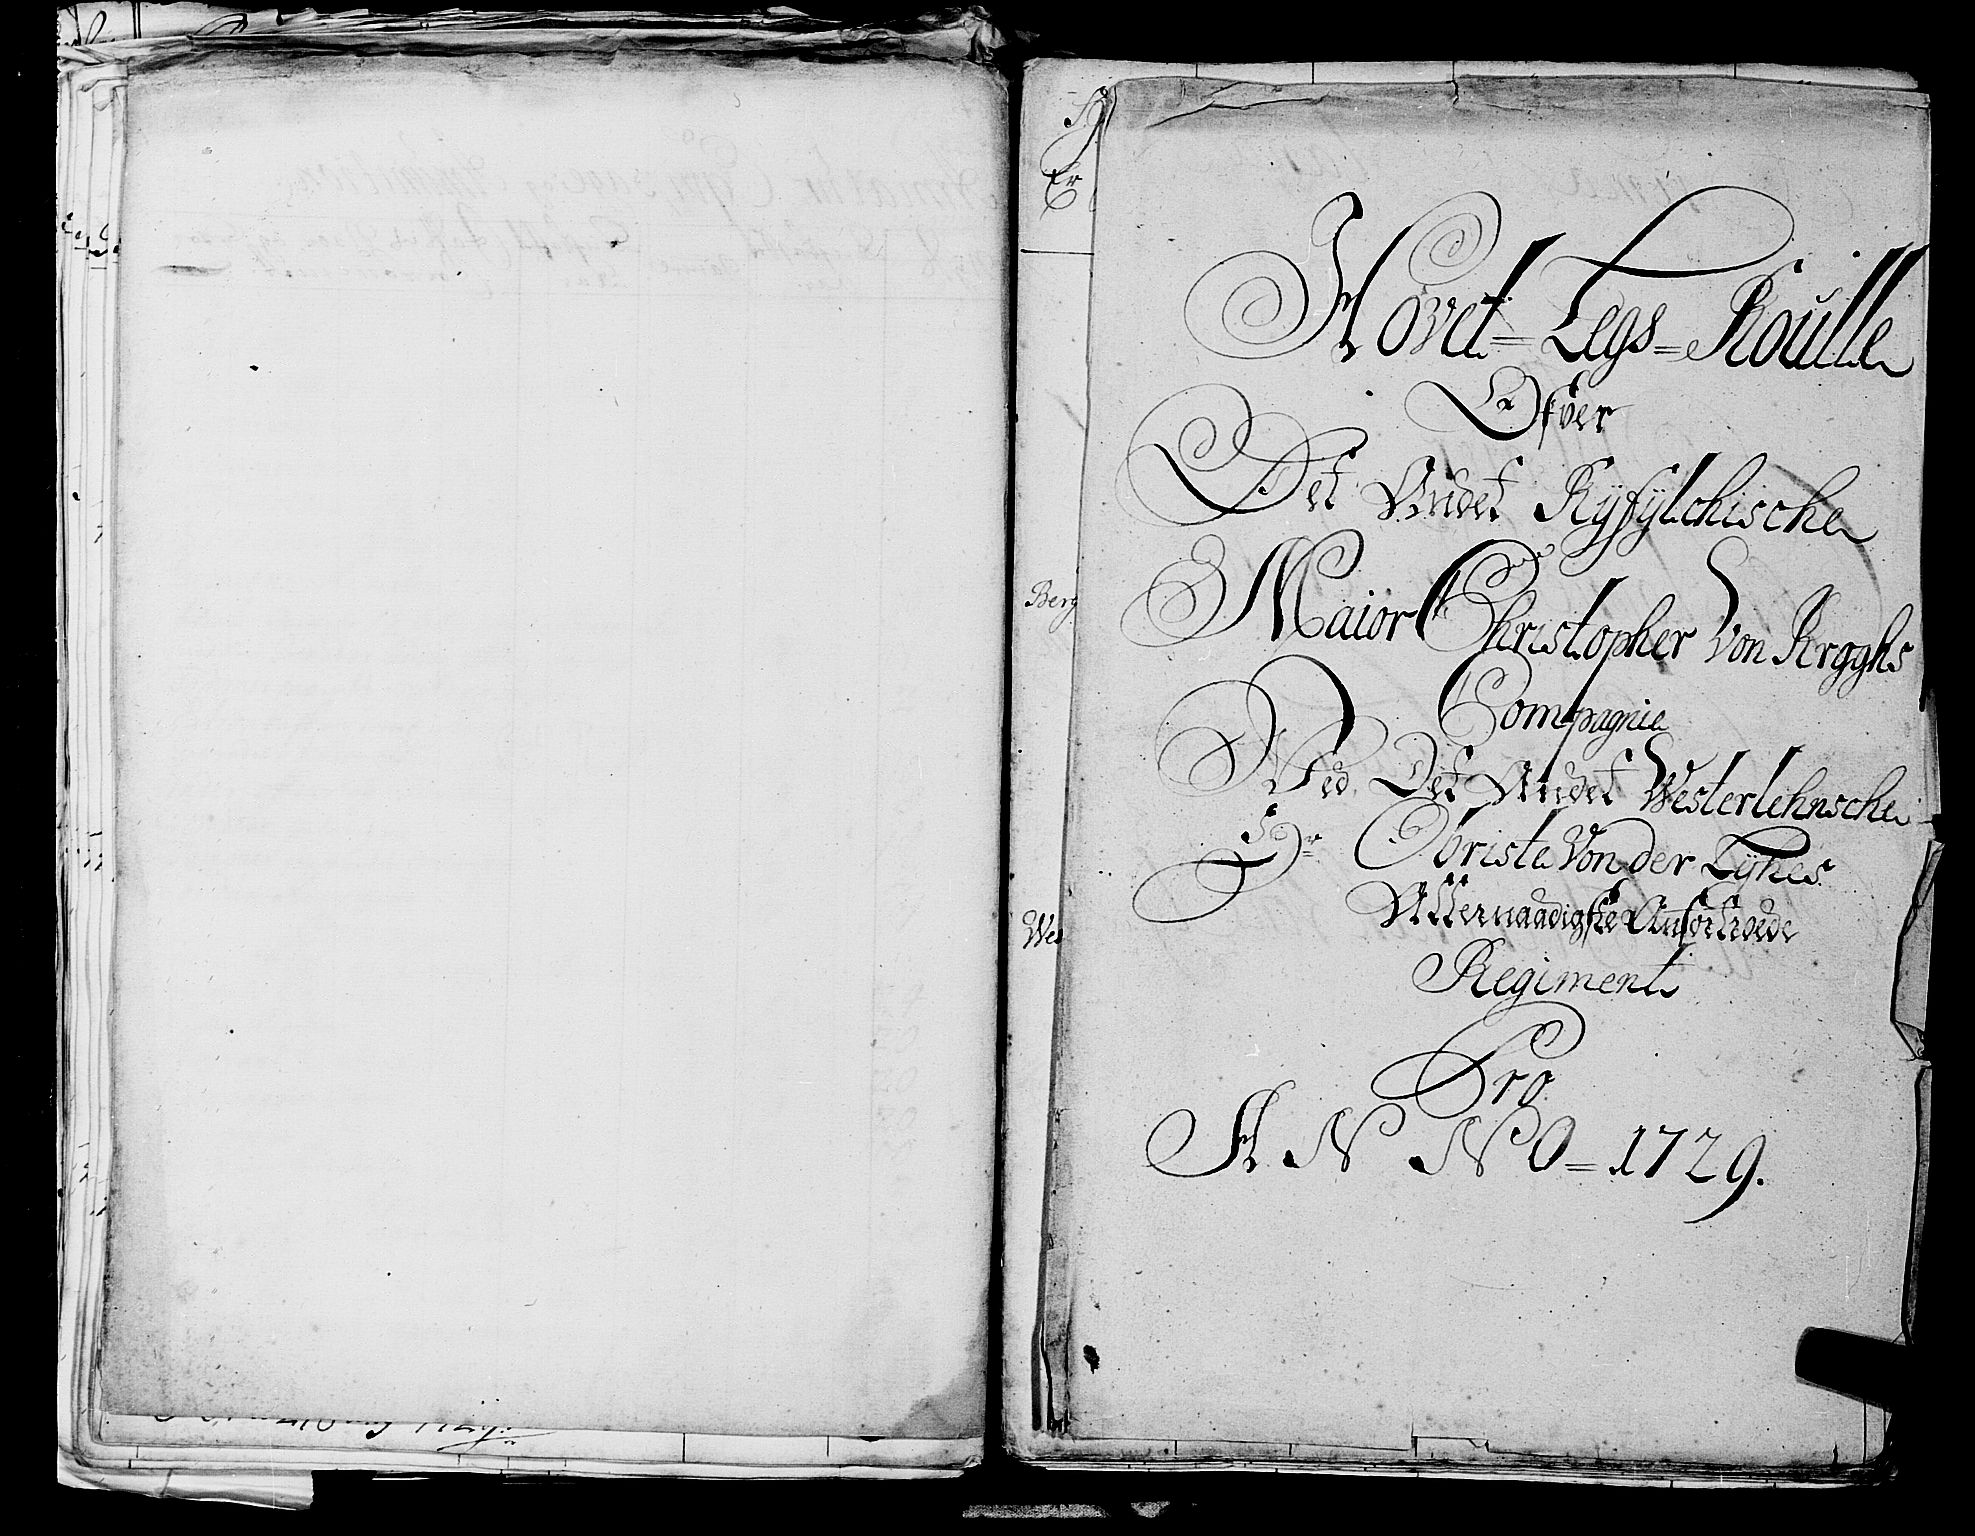 Hovet = Legs = Roulle
Ofver
Det Andet Ryfylchische
Maior Christopher Von Krgghs
Compagnie
Ved Det Andet Westerlehnsche
Hr Obriste Von der Lyhes
Allernaadigste Anfortrode
Regiment
Pro
ANNO = 1729.
Er
Berg
Wes